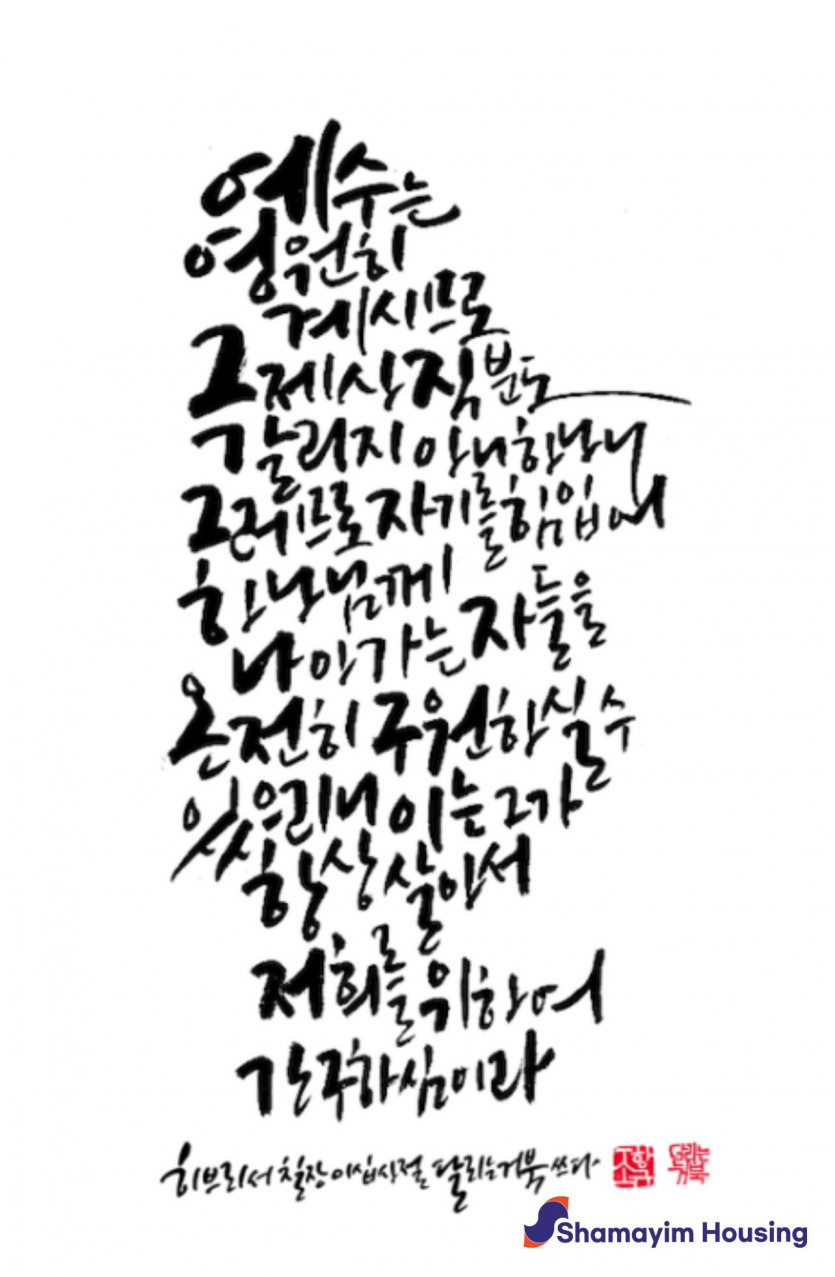 예수는
영원히
계시므로
그 제사 직분도
갈리지 아니하나니
그러므로 자기를 힘입어
하나님께
나아가는 자들을
온전히 구원하실 수
있으리니 이는 그가
항상 살아서
저희를 위하여
간구하심이라
히브리서 칠장 이십사절 달리는거북 쓰다
Shamayim Housing